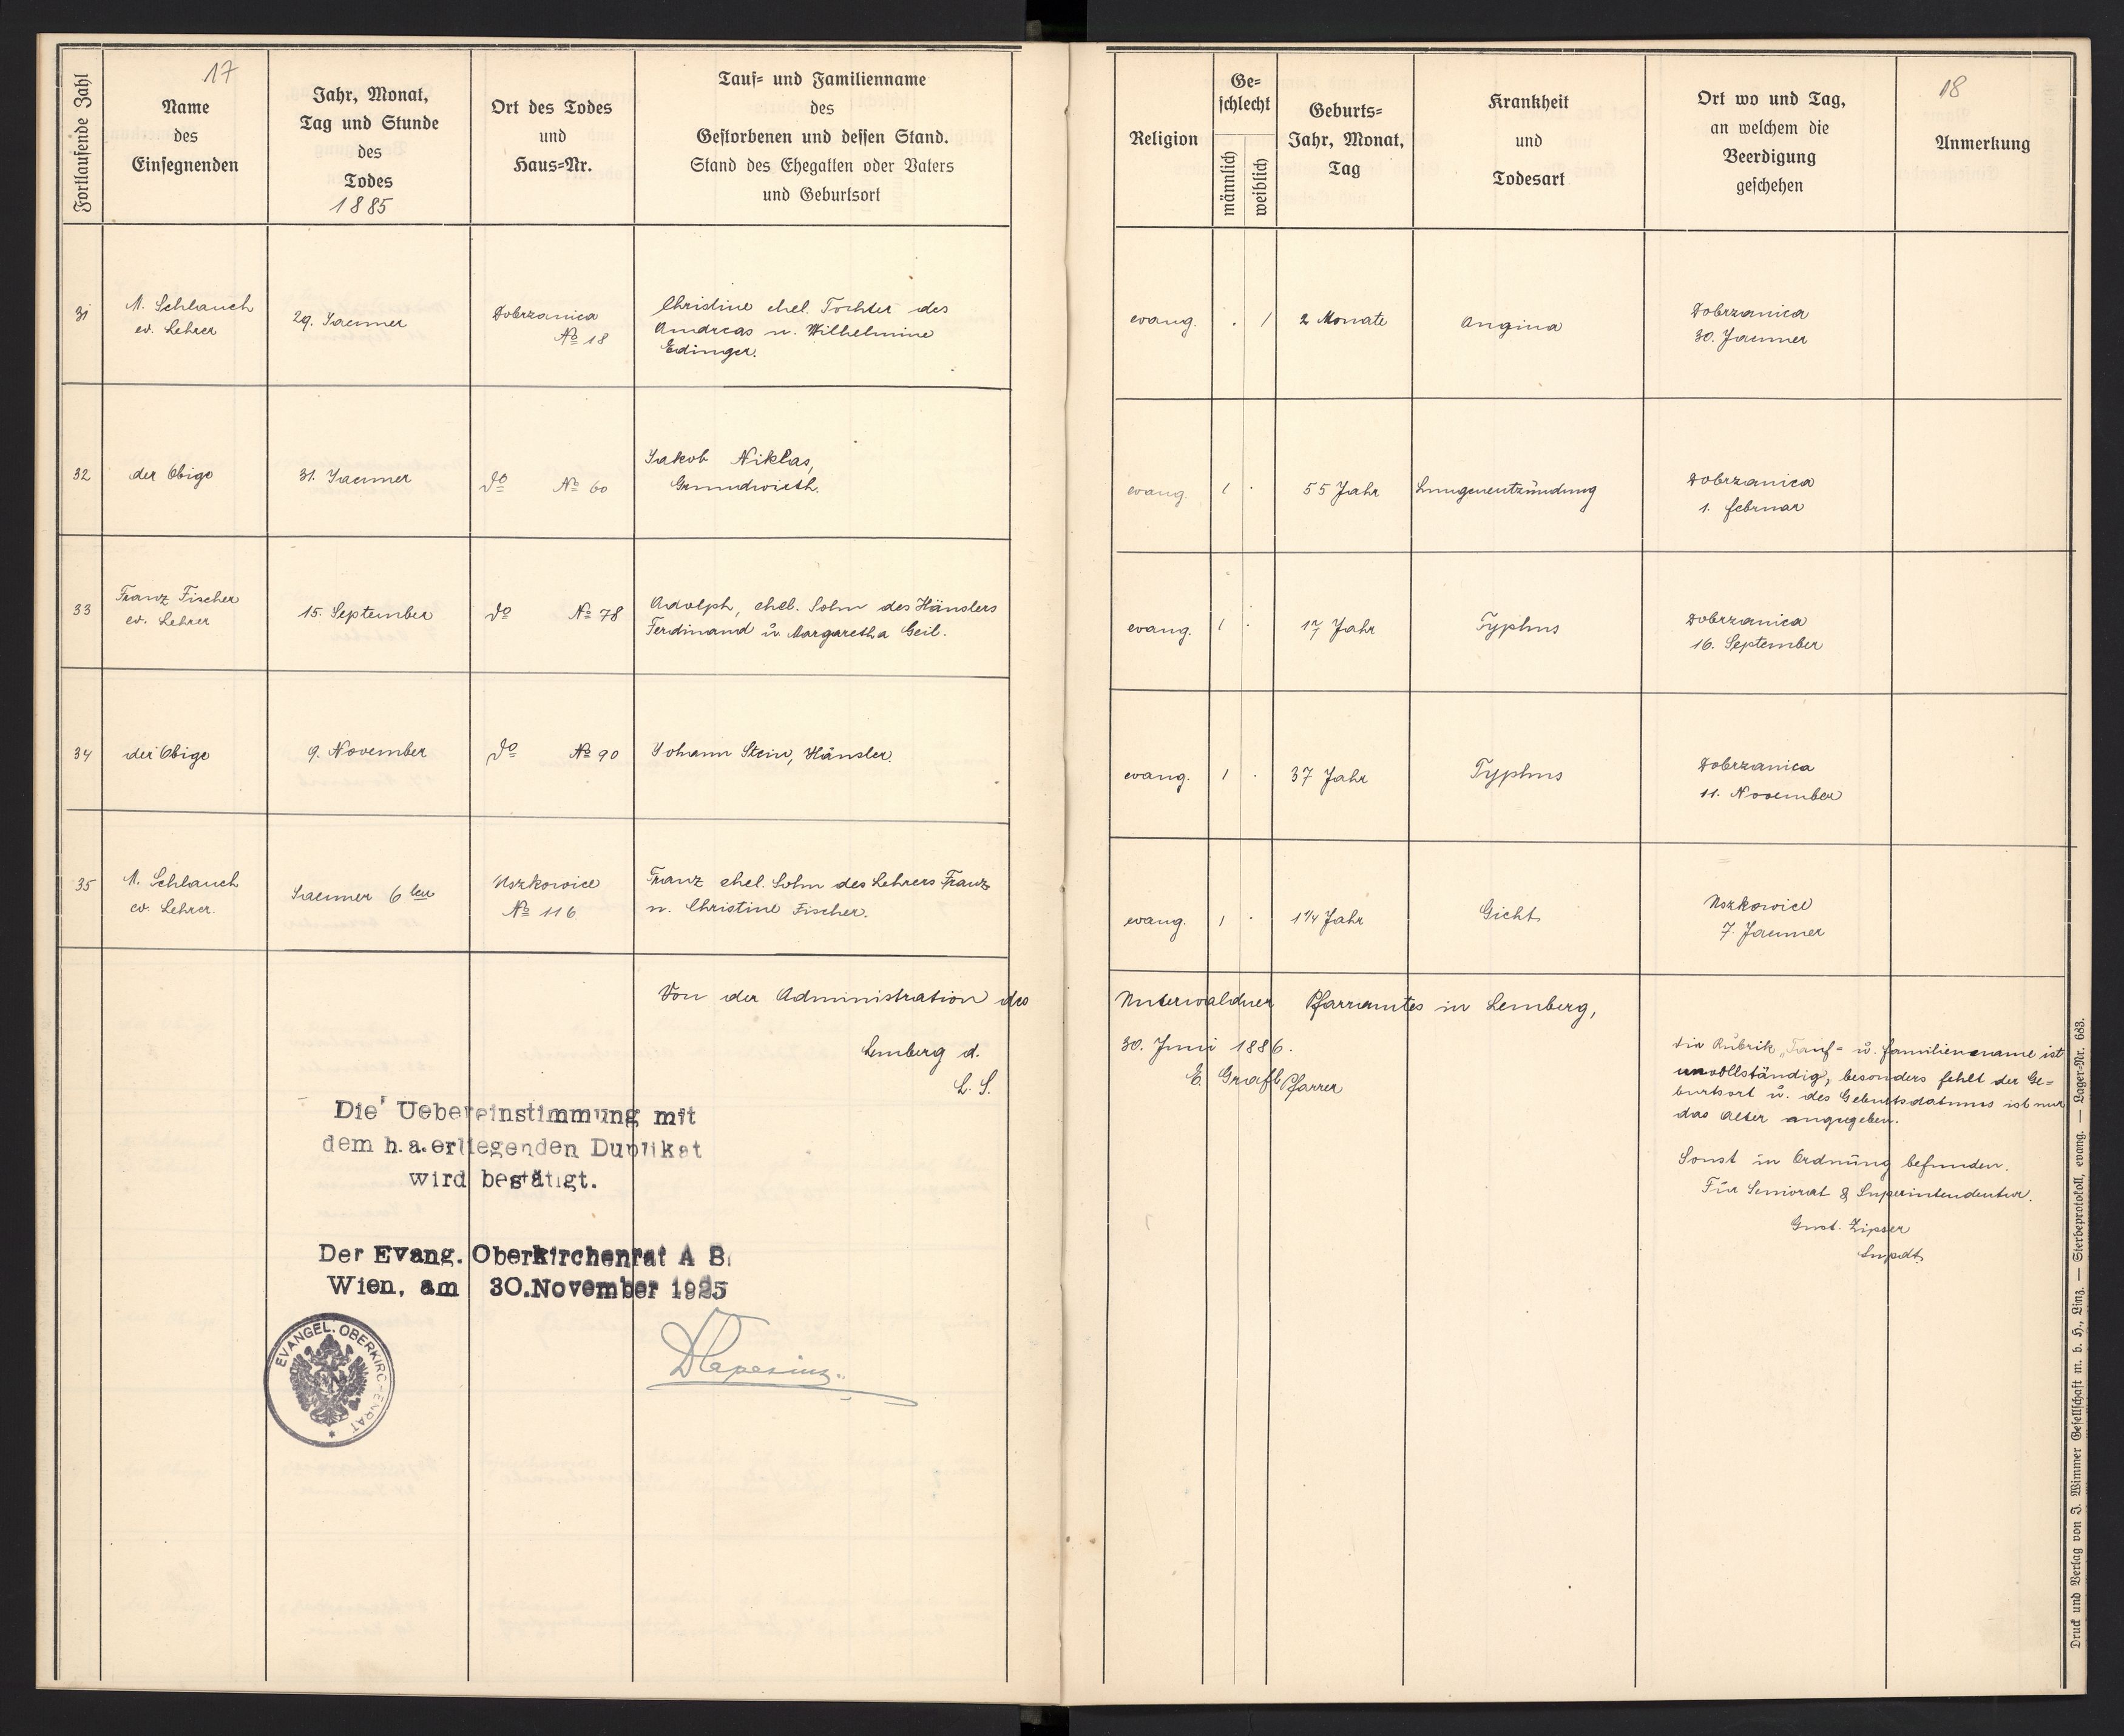 17
Fortlaufende Zahl
Name
des
Einsegnenden
Jahr, Monat,
Tag und Stunde
des
Todes
1885
Ort des Todes
und
Haus-Nr.
Tauf- und Familienname
des
Gestorbenen und dessen Stand.
Stand des Ehegatten oder Vaters
und Geburtsort
Religion
Ge-
schlecht
männlich
weiblich
Geburts-
Jahr, Monat,
Tag
Krankheit
und
Todesart
Ort wo und Tag,
an welchem die
Beerdigung
geschehen
18
Anmerkung
31
A. Schlauch
ev. Lehrer
29. Jaenner
Dobrzanica
No 18
Christine ehel. Tochter des
Andreas u. Wilhelmine
Edinger.
evang. . 1
2 Monate
Angina
Dobrzanica
30. Jaenner
32
der Obige
31. Jaenner
do No 60
Jakob Niklas,
Grundwirth.
evang. 1 .
55 Jahr
Lungenentzündung
Dobrzanica
1. Februar
33
Franz Fischer
ev. Lehrer
15. September
do No 78
Adolph, ehel. Sohn des Häuslers
Ferdinand u. Margaretha Geil.
evang. 1 .
17 Jahr
Typhus
Dobrzanica
16. September
34
der Obige
9. November
do No 90
Johann Stein, Häusler.
evang. 1 .
37 Jahr
Typhus
Dobrzanica
11. November
35
A. Schlauch
ev. Lehrer.
Jaenner 6ten
Uszkowice
No 116
Franz ehel. Sohn des Lehrers Franz
u. Christine Fischer.
evang. 1 .
1 1/4 Jahr
Gicht
Uszkowice
7. Jaenner
Von der Administration des Unterwaldner Pfarramtes in Lemberg,
Lemberg d. 30. Juni 1886.
L. S. E. Grafl Pfarrer
Die Rubrik „Tauf- u. Familienname ist
unvollständig, besonders fehlt der Ge-
burtsort u. des Geburtsdatums ist nur
das Alter angegeben.
Sonst in Ordnung befunden.
Für Seniorat & Superintendentur.
Gust. Zipser
Supdt.
Die Uebereinstimmung mit
dem h.a.erliegenden Duplikat
wird bestätigt.
Der Evang. Oberkirchenrat A B.
Wien, am 30.November 1925
EVANGEL. OBERKIRCHENRAT
Druck und Verlag von J. Wimmer Gesellschaft m. b. H., Linz. — Sterbeprotokoll, evang. — Lager-Nr. 683.